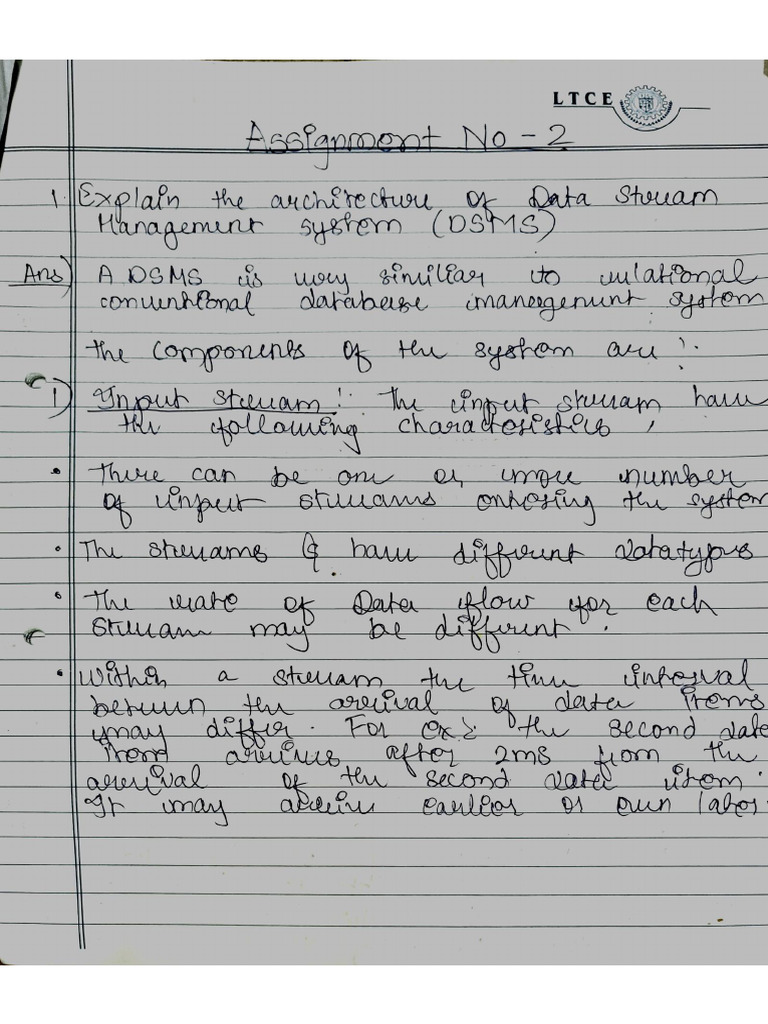 LTCE
Assignment No - 2
1. Explain the architecture of Data Stream
Management system (DSMS)
Ans) A DSMS is very similiar to relational
conventional database management system
The components of the system are :
1) Input stream : The input stream have
the following characteristics ,
• There can be one or more number
of input streams entering the system
• The streams have different datatypes
• The rate of Data flow for each
stream may be different .
• Within a stream the time interval
between the arrival of data items
may differ . For ex : the second data
item arrives after 2ms from the
arrival of the second data item .
It may arrive earlier or even later